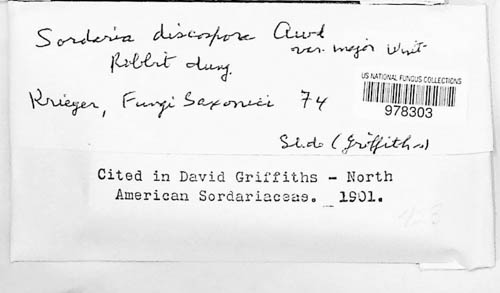 Sordaria discospora Awd
var. major Wint
Rabbit dung.
US NATIONAL FUNGUS COLLECTIONS
978303
Krieger, Fungi Saxonici 74
Slide (Griffiths)
Cited in David Griffiths - North
American Sordariaceae. 1901.